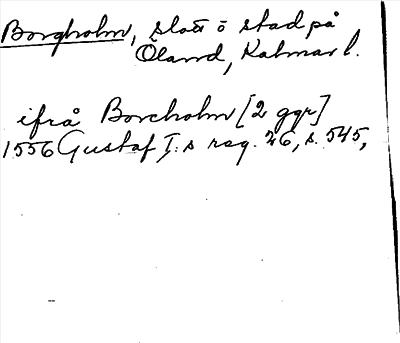 Borgholm, slott o stad på
Öland, Kalmar l.
ifrå Borcholm [2 ggr]
1556 Gustaf I:s reg. 26, s. 545,